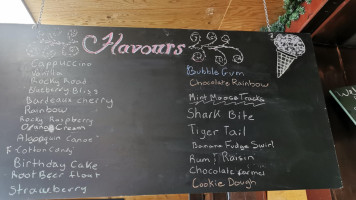 Flavours
Cappuccino
Vanilla
Rocky Road
Blueberry Bliss
Bordeaux cherry
Rainbow
Rocky Raspberry
Orange Cream
Algonquin Canoe
Cotton Candy
Birthday Cake
Root Beer float
Strawberry
Bubble Gum
Chocolate Rainbow
Mint Moose Tracks
Shark Bite
Tiger Tail
Banana Fudge Swirl
Rum & Raisin
Chocolate
Cookie Dough